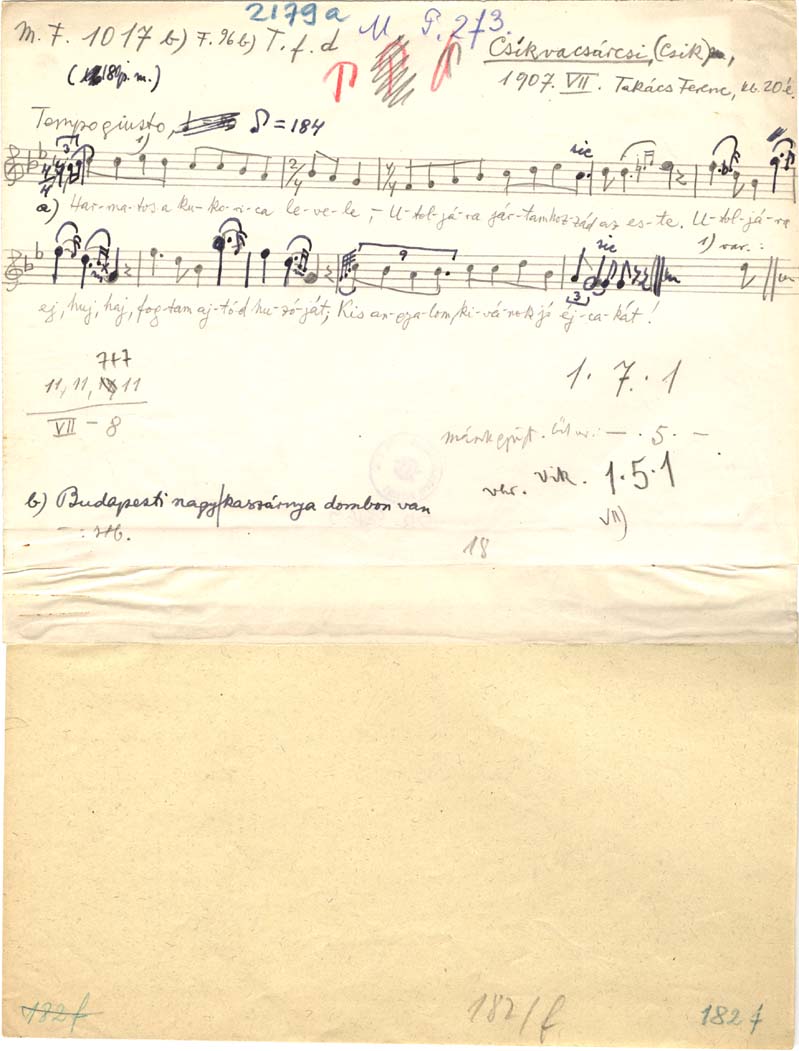 2179a
M. F. 1017 b) F. 96 b) T. f. d M. P. 2f3. Csíkvacsárcsi, (Csík)m,
1907. VII. Takács Ferenc, kb. 20 é.
Tempo giusto, ♪ = 184
1) sic
a) Har-ma-tos a ku-ko-ri-ca le-ve-le, – U-tol-já-ra jár-tam hoz-zád az es-te. U-tol-já-ra
sic 1) var.:
ej, huj, haj, fog-tam aj-tód hu-zó-ját; Kis an-gya-lom, ki-vá-nok jó éj-ca-kát!
7+7
11, 11, 11
VII – 8
1. 7. 1
– . 5. –
vhr. vik. 1.5.1
VII)
b) Budapesti nagy kaszárnya dombon van
– : stb.
18
182 f 182/f 182 f